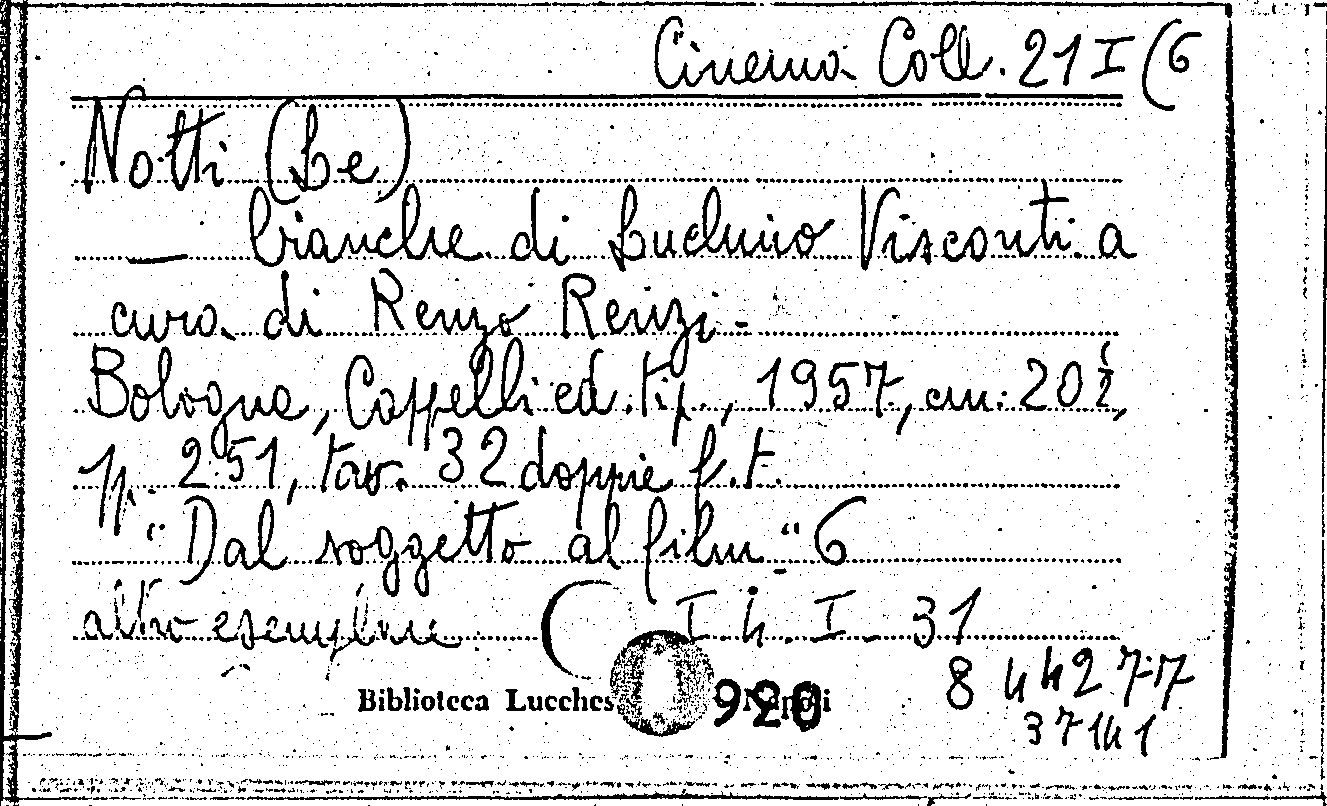 Cinema Coll. 21 I (6
Notti (Le)
— bianche di Luchino Visconti a
cura di Renzo Renzi -
Bologna, Cappelli ed. tip., 1957, cm. 20 ½,
pp. 251, tav. 32 doppie f.t.
"Dal soggetto al film" 6
altro esemplare I h. I - 31
8 442777
Biblioteca Lucches 920
37141